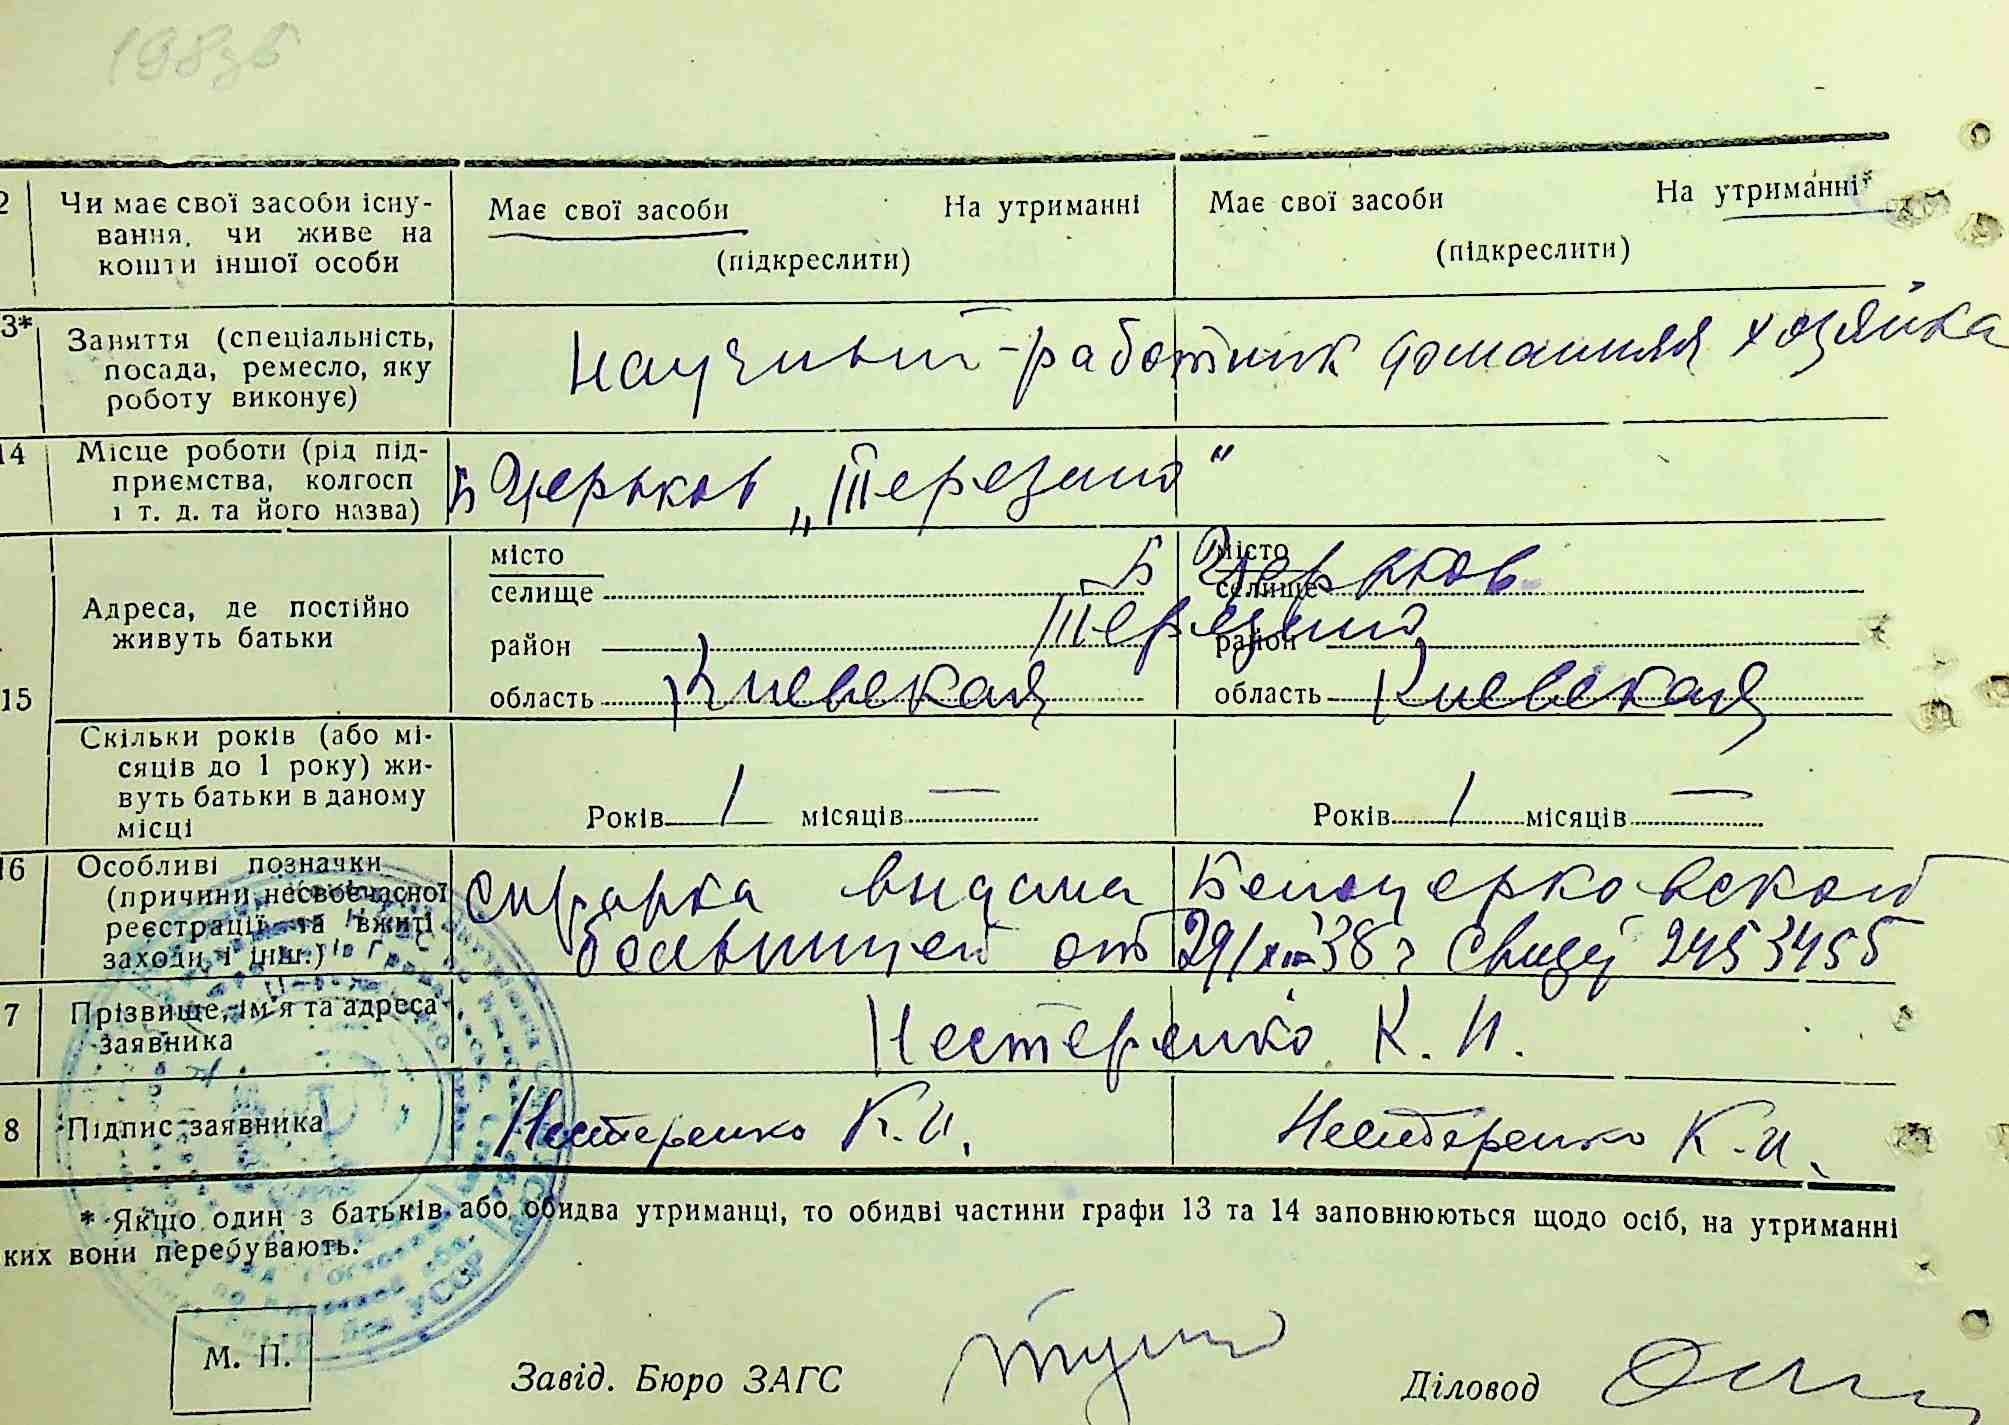 2 Чи має свої засоби існу- Має свої засоби На утриманні Має свої засоби На утриманні*
вання, чи живе на
кошти іншої особи (підкреслити) (підкреслити)
3* Заняття (спеціальність, научный-работник домашняя хозяйка
посада, ремесло, яку
роботу виконує)
14 Місце роботи (рід під- Б Церьков „Терезино“
приємства, колгосп
і т. д. та його назва)
місто Б Церьков місто
Адреса, де постійно селище селище
живуть батьки район Терезино район
15 область Киевская область Киевская
Скільки років (або мі-
сяців до 1 року) жи-
вуть батьки в даному Років 1 місяців — Років 1 місяців —
місці
16 Особливі позначки справка выдана Белоцерковской
(причини несвоєчасної
реєстрації та вжиті больницей от 29/XII 38 г 2453455
заходи і інш.)
7 Прізвище, ім'я та адреса Нестеренко К. И.
заявника
8 Підпис заявника Нестеренко К. И. Нестеренко К. И.
* Якщо один з батьків або обидва утриманці, то обидві частини графи 13 та 14 заповнюються щодо осіб, на утриманні
ких вони перебувають.
УССР
М. П. Завід. Бюро ЗАГС Діловод